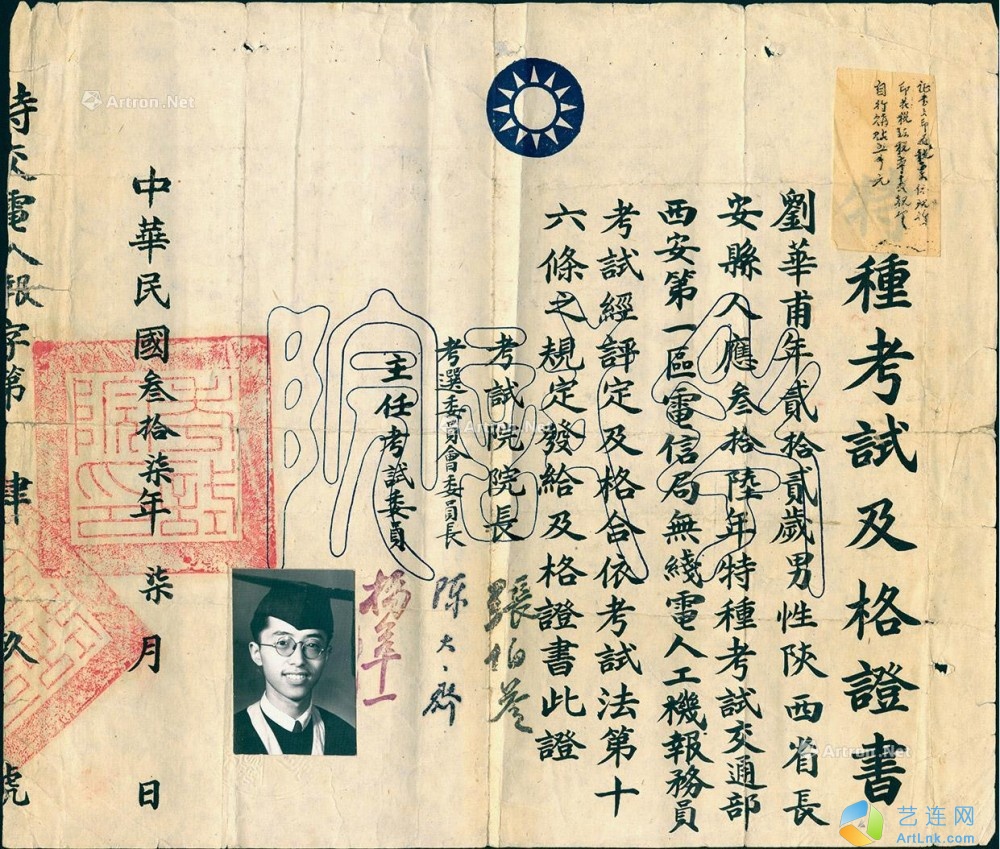 種考試及格證書
劉華甫年貳拾貳歲男性陝西省長
安縣人應叁拾陸年特種考試交通部
西安第一區電信局無綫電人工機報務員
考試經評定及格合依考試法第十
六條之規定發給及格證書此證
考試院院長 張伯苓
考選委員會委員長 陈大齊
主任考試委員
中華民國叁拾柒年柒月日
特交電人報字第肆玖號
考試院
考試院印
Artron.Net
Artron.Net
Artron.Net
艺连网
ArtLnk.com